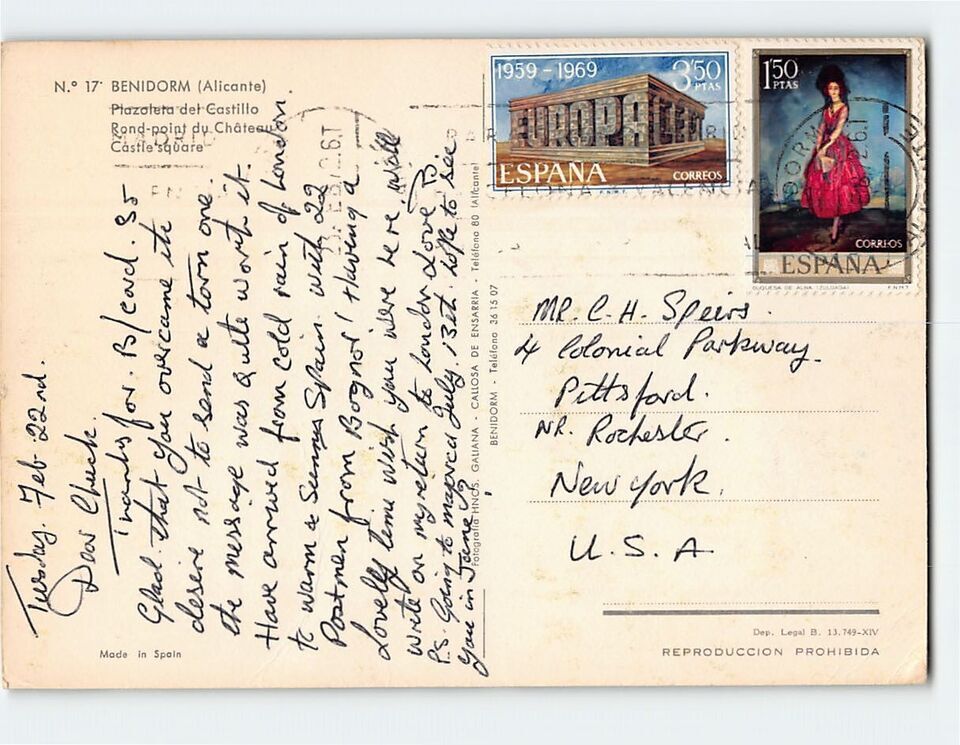 N.º 17 BENIDORM (Alicante)
Plazoleta del Castillo
Rond-point du Château
Castle square
1959 - 1969
3'50
PTAS
EUROPA CEPT
ESPAÑA
CORREOS
1'50
PTAS
CORREOS
ESPAÑA
DUQUESA DE ALBA (ZULOAGA)
F.N.M.T.
Tuesday. Feb. 22nd.
Dear Chuck.
Thanks for B/card. 35
Glad that you overcame the
desire not to send a torn one.
the message was quite worth it.
Have arrived from cold rain of London.
to warm a Spain. with 22
Postmen from Bognor! Having a
Lovely time wish you were here, will
write on my return to London Love
P.S. Going to July. 13th. hope to see
you in June?
Fotografía HNOS. GALIANA - CALLOSA DE ENSARRIA - Teléfono 80 (Alicante)
BENIDORM - Teléfono 36 15 07
MR. C. H. Speirs.
4 Colonial Parkway.
Pittsford.
NR. Rochester.
New York.
U. S. A
Made in Spain
Dep. Legal B. 13.749-XIV
REPRODUCCION PROHIBIDA